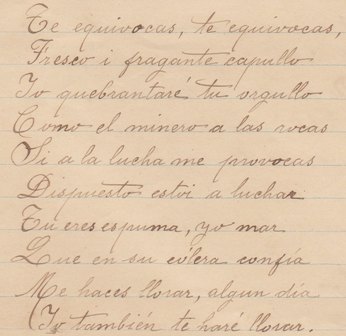 Te equivocas, te equivocas,
Fresco i fragante capullo
Yo quebrantaré tu orgullo
Como el minero a las rocas
Si a la lucha me provocas
Dispuesto estoi a luchar
Tu eres espuma, yo mar
Que en su cólera confía
Me haces llorar, algun día
Yo también te haré llorar.